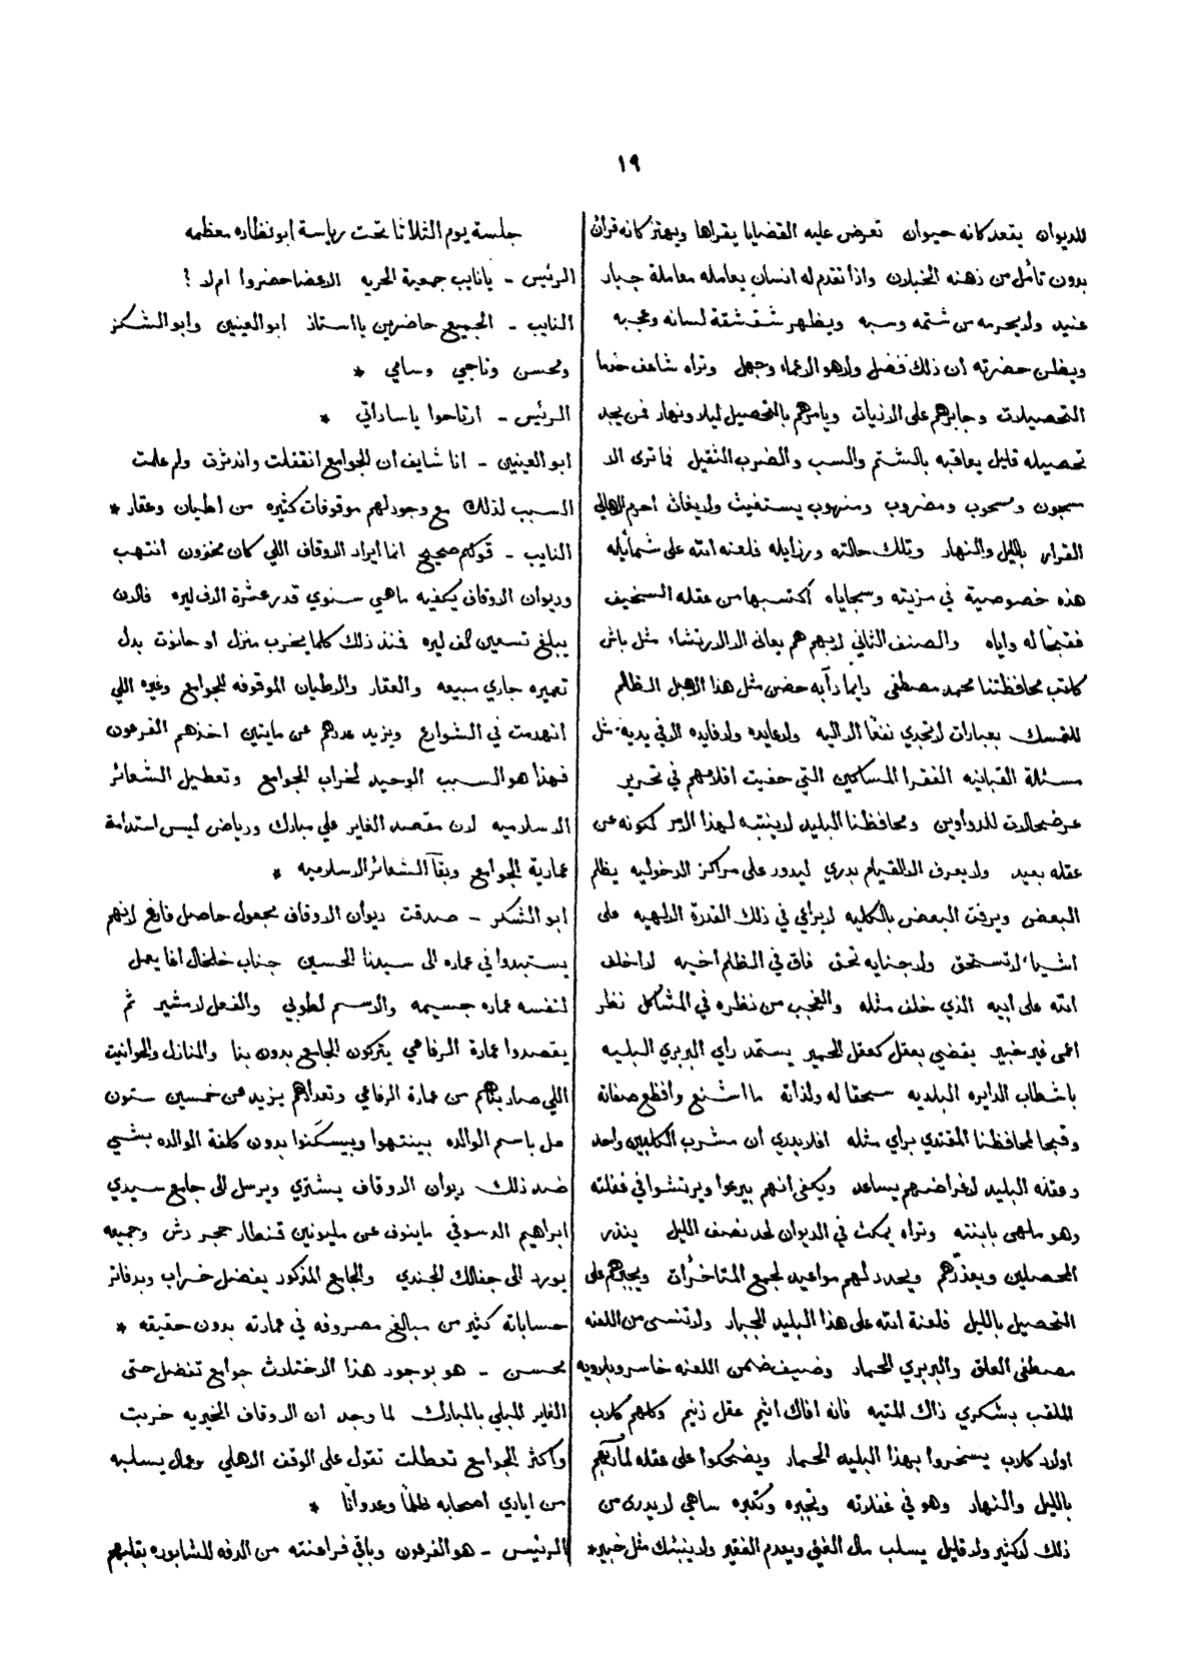 ١٩
للديوان يقعد كانه حيوان تعرض عليه القضايا يقراها ويهتز كانه قرأن
بدون تأمل من ذهنه الخبلان واذا تقدم له انسان يعامله معاملة جبار
عنيد ولا يحرمه من شتمه وسبه ويظهر شقشقة لسانه وعجبه
ويظن حضرته ان ذلك فضل ولا هو الاعماء وجهل وتراه شاغف
التحصيلات وجابرهم على الاذيات ويامرهم بالتحصيل ليلا ونهار فمن يجد
تحصيله قليل يعاقبه بالشتم والسب والضرب الثقيل فما ترى الا
مسجون ومسحوب ومضروب ومنهوب يستغيث ولا يغاث احرم الاهالي
القرار بالليل والنهار وتلك حالته ورزايله فلعنه الله على شمائيله
هذه خصوصية في مزيته وسجاياه اكتسبها من عقله السخيف
فقبحًا له واياه والصنف الثاني لا يهمهم يعاني الا الارتشاء مثل باش
كاتب محافظتنا محمد مصطفى دايما دأبه حضن مثل هذا الاهبل الظالم
للتمسك بعبارات لا تجدي نفعًا الا اليه ولا عايده ولا فايده الا في يديه مثل
مسئلة القبانيه الفقرا المساكين التي حفيت اقلامهم في تحرير
عرضحالات للدواوين ومحافظنا البليد لا ينتبه لهذا الامر لكونه عن
عقله بعيد ولا يعرف الا القيام بدري ليدور على مراكز الدخوليه يظلم
البعض ويرفت البعض بالكليه لا يراعي في ذلك القدرة الالهيه على
اشياء لا تستحق ولا جنايه تحق فاق في الظلم اخيه لا اخلف
الله على ابيه الذي خلف مثله والتعجب من نظره في المشاكل نظر
اعمى غير خبير يقضي بعقل كعقل الحمير يستمد راي البربري البليه
باشطاب الدايره البلديه سحقا له ولذاته ما اشنع وافظع صفاته
وقبحا لمحافظنا المقتدي براي مثله افلا يدري ان مشرب الكلبين واحد
وعقله البليد لاغراضهم يساعد ويكفى انهم يبرعوا ويرتشوا في غفلته
وهو ملهى بابنته وتراه يمكث في الديوان لحد نصف الليل ينذر
المحصلين ويعذرهم ويحدد لهم مواعيد لجمع المتاخرات ويجبرهم على
التحصيل بالليل فلعنة الله على هذا البليد الجبار ولا تنسى من اللعنه
مصطفى العلق والبربري الحمار وضيف ضمن اللعنه خاسر وبلاويه
الملقب بشكري ذاك المتيه فانه افاك اثيم عقل زنيم وكلهم كلاب
اولاد كلاب يسخروا بهذا البليه الحمار ويضحكوا على عقله لما رأهم
بالليل والنهار وهو في غفلاته وتجبره وتكبره ساهي لا يدرى من
ذلك لا كثير ولا قليل يسلب مال الغني ويعدم الفقير ولا ينبئك مثل خبير *
جلسة يوم الثلاثا تحت رياسة ابو نظاره معظمه
الرئيس – يا نايب جمعية الحريه الاعضا حضروا ام لا ؟
النايب – الجميع حاضرين يا استاذ ابو العينين وابو الشكر
ومحسن وناجي وسامي *
الرئيس – ارتاحوا ياساداتي *
ابو العينين – انا شايف ان الجوامع انقفلت واندثرت ولم علمت
السبب لذلك مع وجود لهم موقوفات كثيره من اطيان وعقار *
النايب – قولكم صحيح انما ايراد الاوقاف اللي كان مخزون انتهب
وديوان الاوقاف يكفيه ماهي سنوي قدر عشرة الاف ليره فالان
يبلغ تسعين الف ليره فمنذ ذلك كلما يخرب منزل او حانوت بدل
تعميره جاري مبيعه والعقار والاطيان الموقوفه للجوامع وغيره اللي
انهدمت في الشوارع ويزيد عددهم عن مايتين اخذهم الفرعون
فهذا هو السبب الوحيد لخراب الجوامع وتعطيل الشعائر
الاسلاميه لان مقصد الغاير علي مبارك ورياض ليس استدامة
عمارية الجوامع وبقآ الشعائر الاسلاميه *
ابو الشكر – صدقت ديوان الاوقاف مجعول حاصل فارغ لانهم
يستبدوا في عماره الى سيدنا الحسين جناب خلخال اغا يعمل
لنفسه عماره جسيمه والاسم لطوبي والفعل لامشير ثم
يقصدوا عمارة الرفاعي يتركون الجامع بدون بنا والمنازل والحوانيت
اللي صار بناهم من عمارة الرفاعي وتعدادهم يزيد عن خمسين ستون
محل باسم الوالده بينتهوا ويسكنوا بدون كلفة الوالده بشي
ضد ذلك ديوان الاوقاف يشتري ويرسل الى جامع سيدي
ابراهيم الدسوقي ماينوف عن مليونين قنطار حجر دش وجميعه
يورد الى جفالك الجندي والجامع المذكور يفضل خراب وبدفاتر
حساباته كثير من مبالغ مصروفه في عمارته بدون حقيقه *
محسن – هو بوجود هذا الاختلاث جوامع تفضل حتى
الغاير المبلي بالمبارك لما وجد ان الاوقاف الخيريه خربت
واكثر الجوامع تعطلت تقول على الوقف الاهلي وعمال يسلبه
من ايادي اصحابه ظلمًا وعدوانًا *
الرئيس – هو الفرعون وباقي فراعنته من الدفه للشابوره بقلبهم